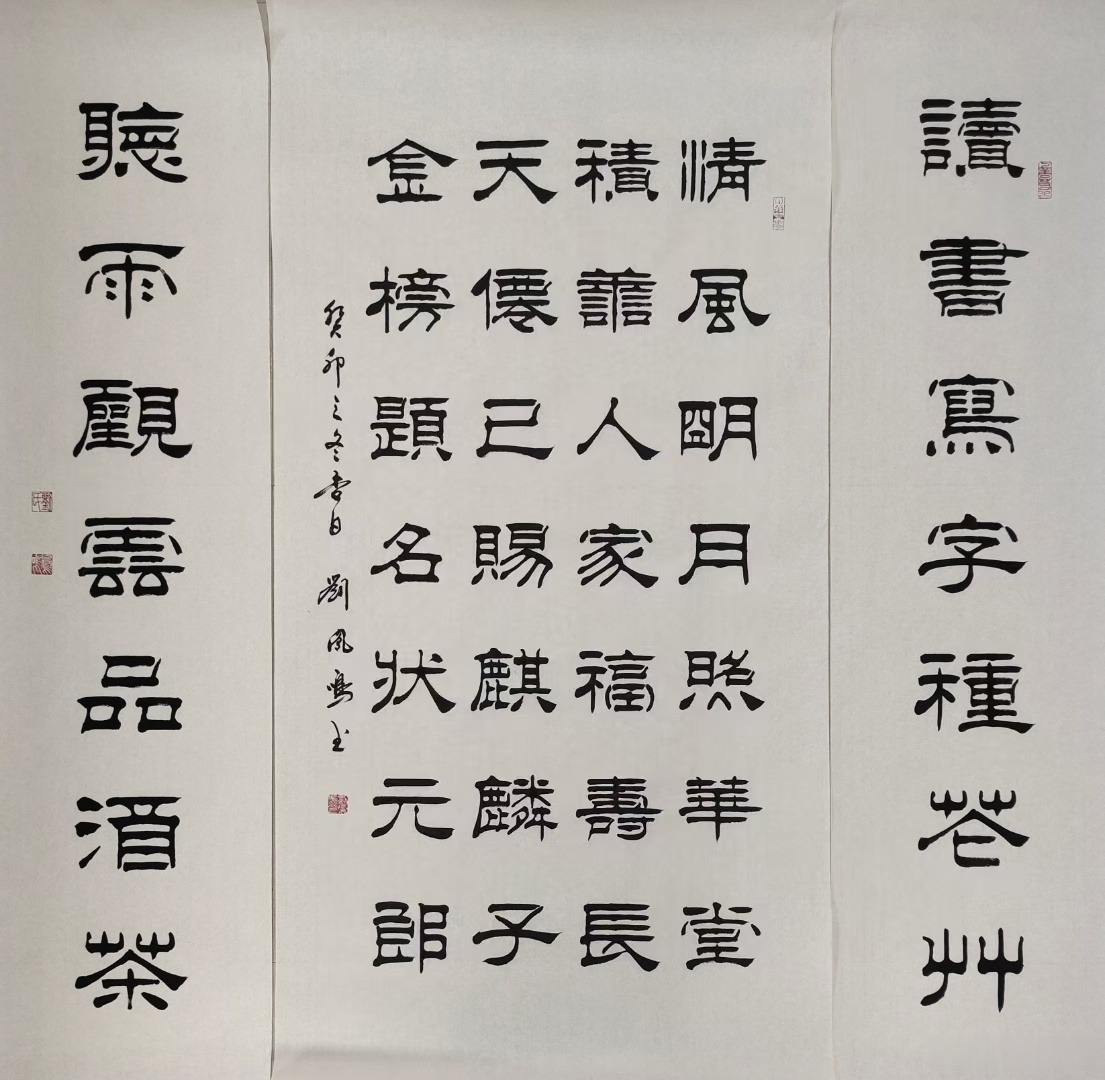 讀書寫字種花艸
清風朙月照華堂
積譱人家福壽長
天僊已賜麒麟子
金榜題名狀元郎
癸卯之冬吉日 劉鳳鳴书
聽雨觀雲品酒茶